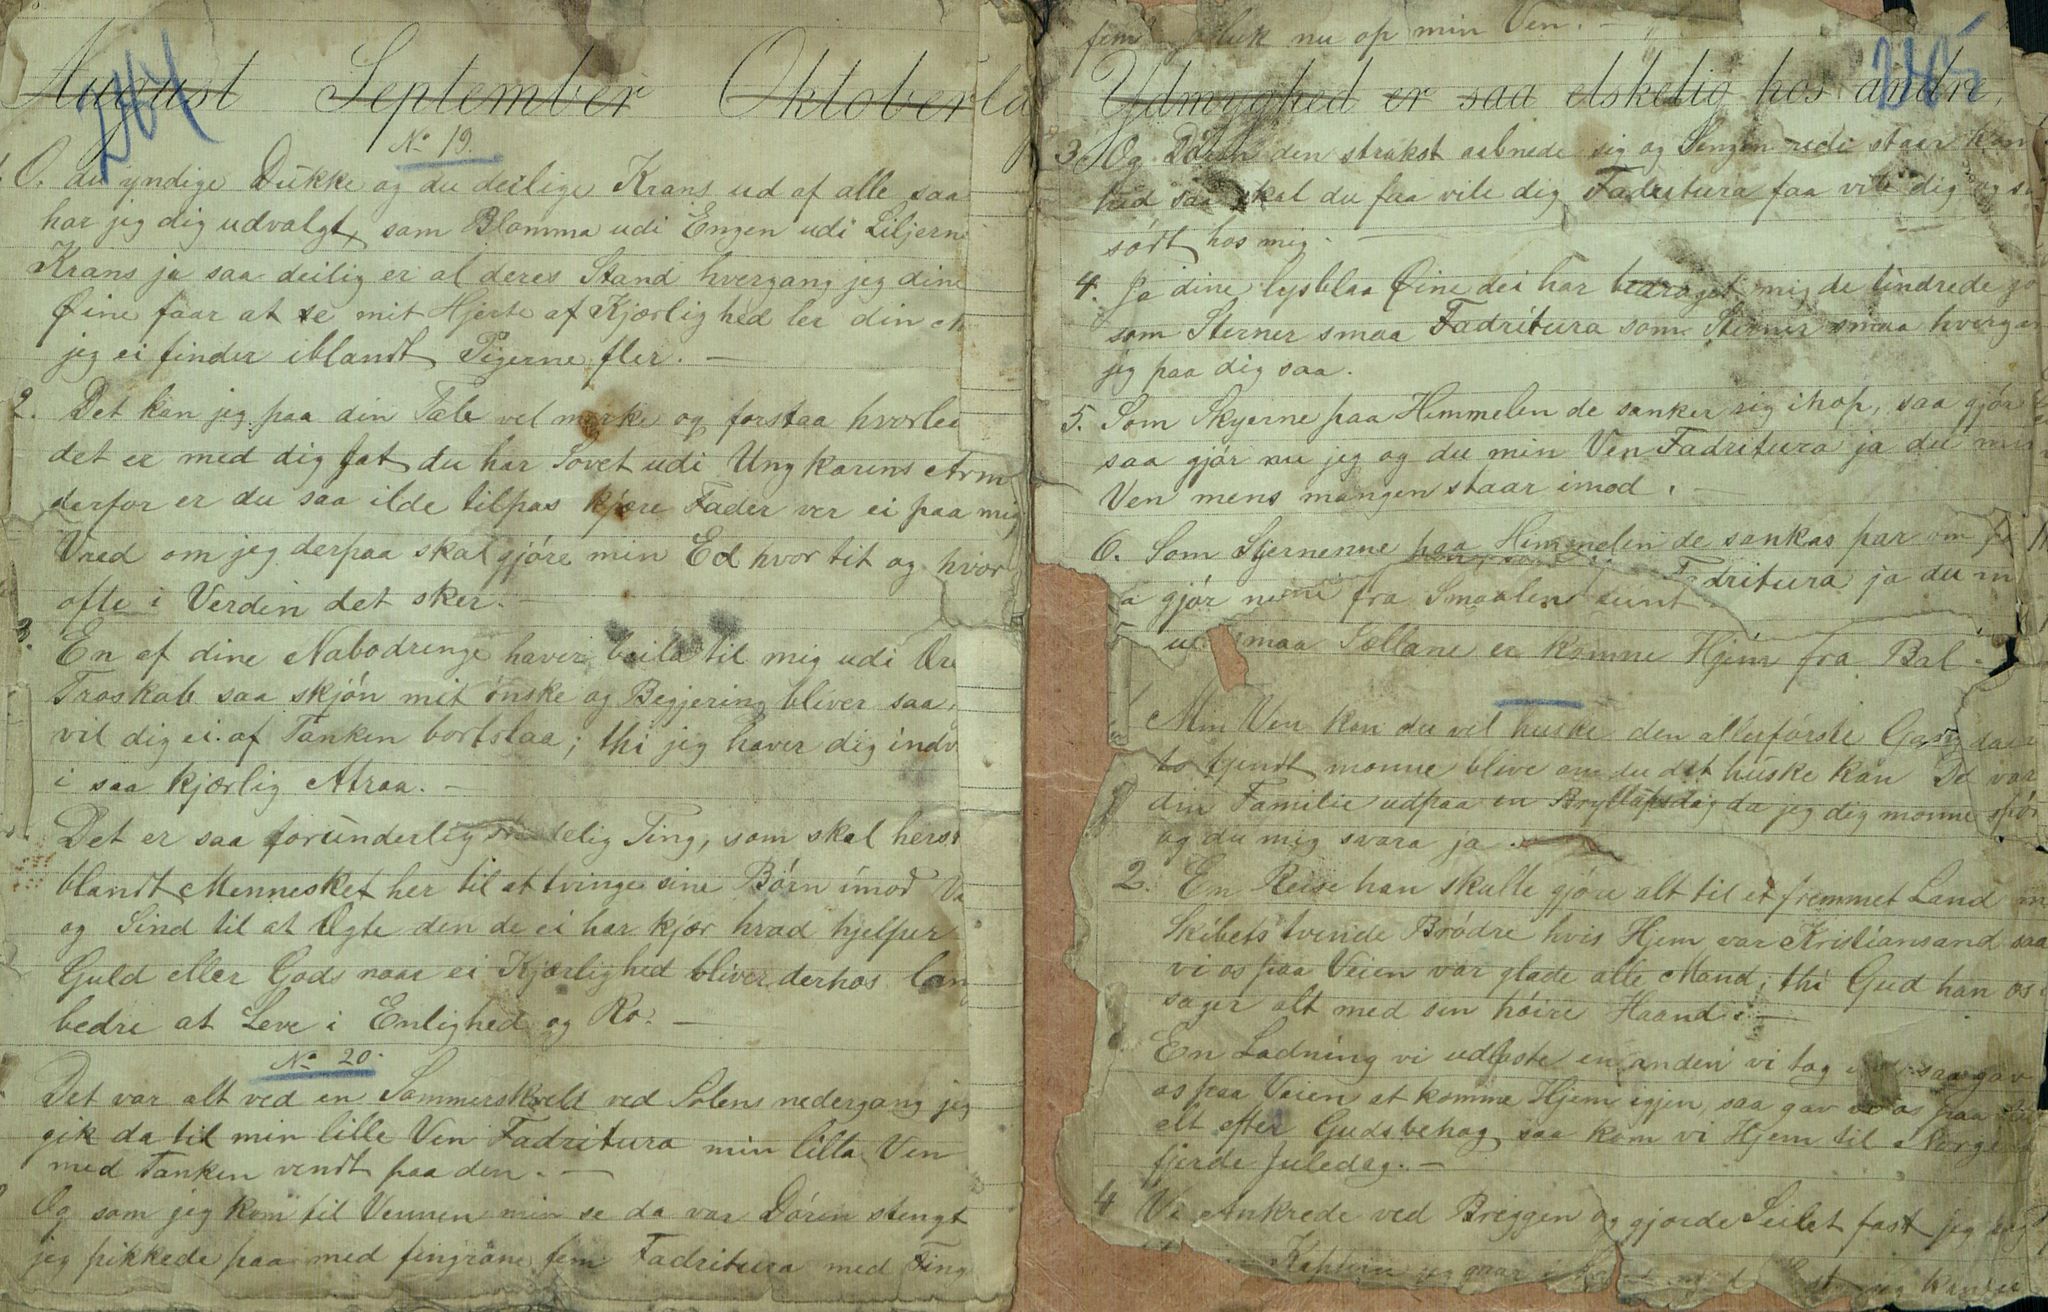 264
August September Oktober
No 19.
O. du yndige Dukke og du deilige Krans ud af alle saa
har jeg dig udvalgt, som Blomma udi Engen udi Liljern
Krans ja saa deilig er al deres Stand hvergang jeg dine
Øine faar at se mit Hjerte af Kjærlighed ler din
jeg ei finder iblandt Pigerne fler. —
2. Det kan jeg paa din Tale vel mærke og forstaa hvorled
det er med dig fat du har Sovet udi Ungkarens Arm
derfor er du saa ilde tilpas kjære Fader ver ei paa mig
Vred om jeg derpaa skal gjöre min Ed hvor tit og hvor
ofte i Verden det sker. —
3. En af dine Nabodrenge haver beila til mig udi
Troskab saa skjön mit önske og Begjering bliver saa
vil dig ei af Tanken bortslaa; thi jeg haver dig indv
i saa kjærlig Atraa. —
Det er saa forunderlig en Ting, som skal hers
blandt Mennesket her til at tvinge sine Börn imod
og Sind til at Ægte den de ei har kjær hvad hjelper
Guld eller Gods naar ei Kjærlighed bliver derhos lan
bedre at Leve i Enlighed og Ro. —
No 20.
Det var alt ved en Sommerskveld ved Solens nedergang jeg
gik da til min lille Ven Fadritura min lilla Ven
med Tanken vendt paa den. —
Og som jeg kom til Vennen min se da var Dören stengt
jeg pikkede paa med fingrane fem Fadritura med Fing
fem luk nu op min Ven. —
265
Ydmyghed er saa elskelig hos andre,
3. Og Dören den strakst aabnede sig og Sengen udi staar
saa skal du faa vile dig Fadritura faa vile dig og s
södt hos mig. —
4. Ja dine lysblaa Øine dei har bedraget mig de tindrede jo
som Sterner smaa Fadritura som Sterner smaa hvergan
jeg paa dig saa.
5. Som Skyerne paa Himmelen de sanker sig ihop, saa gjör
saa gjör nu jeg og du min Ven Fadritura ja du min
Ven mens mangen staar imod. —
6. Som Stjernenne paa Himmelen de sankas par om
gjör fra Smaalen sunt Fadritura ja du m
smaa Sællane er komne Hjem fra Bal. —
Min Ven kan du vel huske den allerförste Gang da
to kjendt monne blive om du det huske kan De var
din Familie udpaa en Bryllupsdag da jeg dig monne spör
og du mig svara ja. —
2. En Reise han skulle gjöre alt til et fremmet Land m
Skibets tvende Brödre hvis Hjem var Kristiansand saa
vi os paa Veien var glade alle Mand; thi Gud han os
sager alt med sin höire Haand. —
En Ladning vi udloste en anden vi tog saa gav
os paa Veien at komme Hjem igjen, saa gav vi os paa
alt efter Gudsbehag saa kom vi Hjem til Norge
fjerde Juledag. —
4 Vi Ankrede ved Bryggen og gjorde Seilet fast jeg
Kaptein jeg